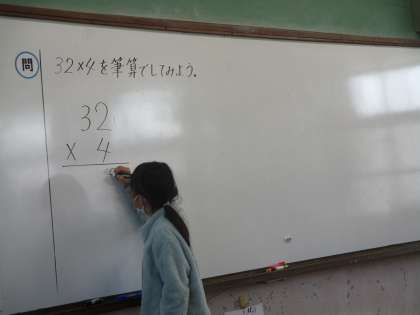 問 32×4を筆算でしてみよう。
32
× 4